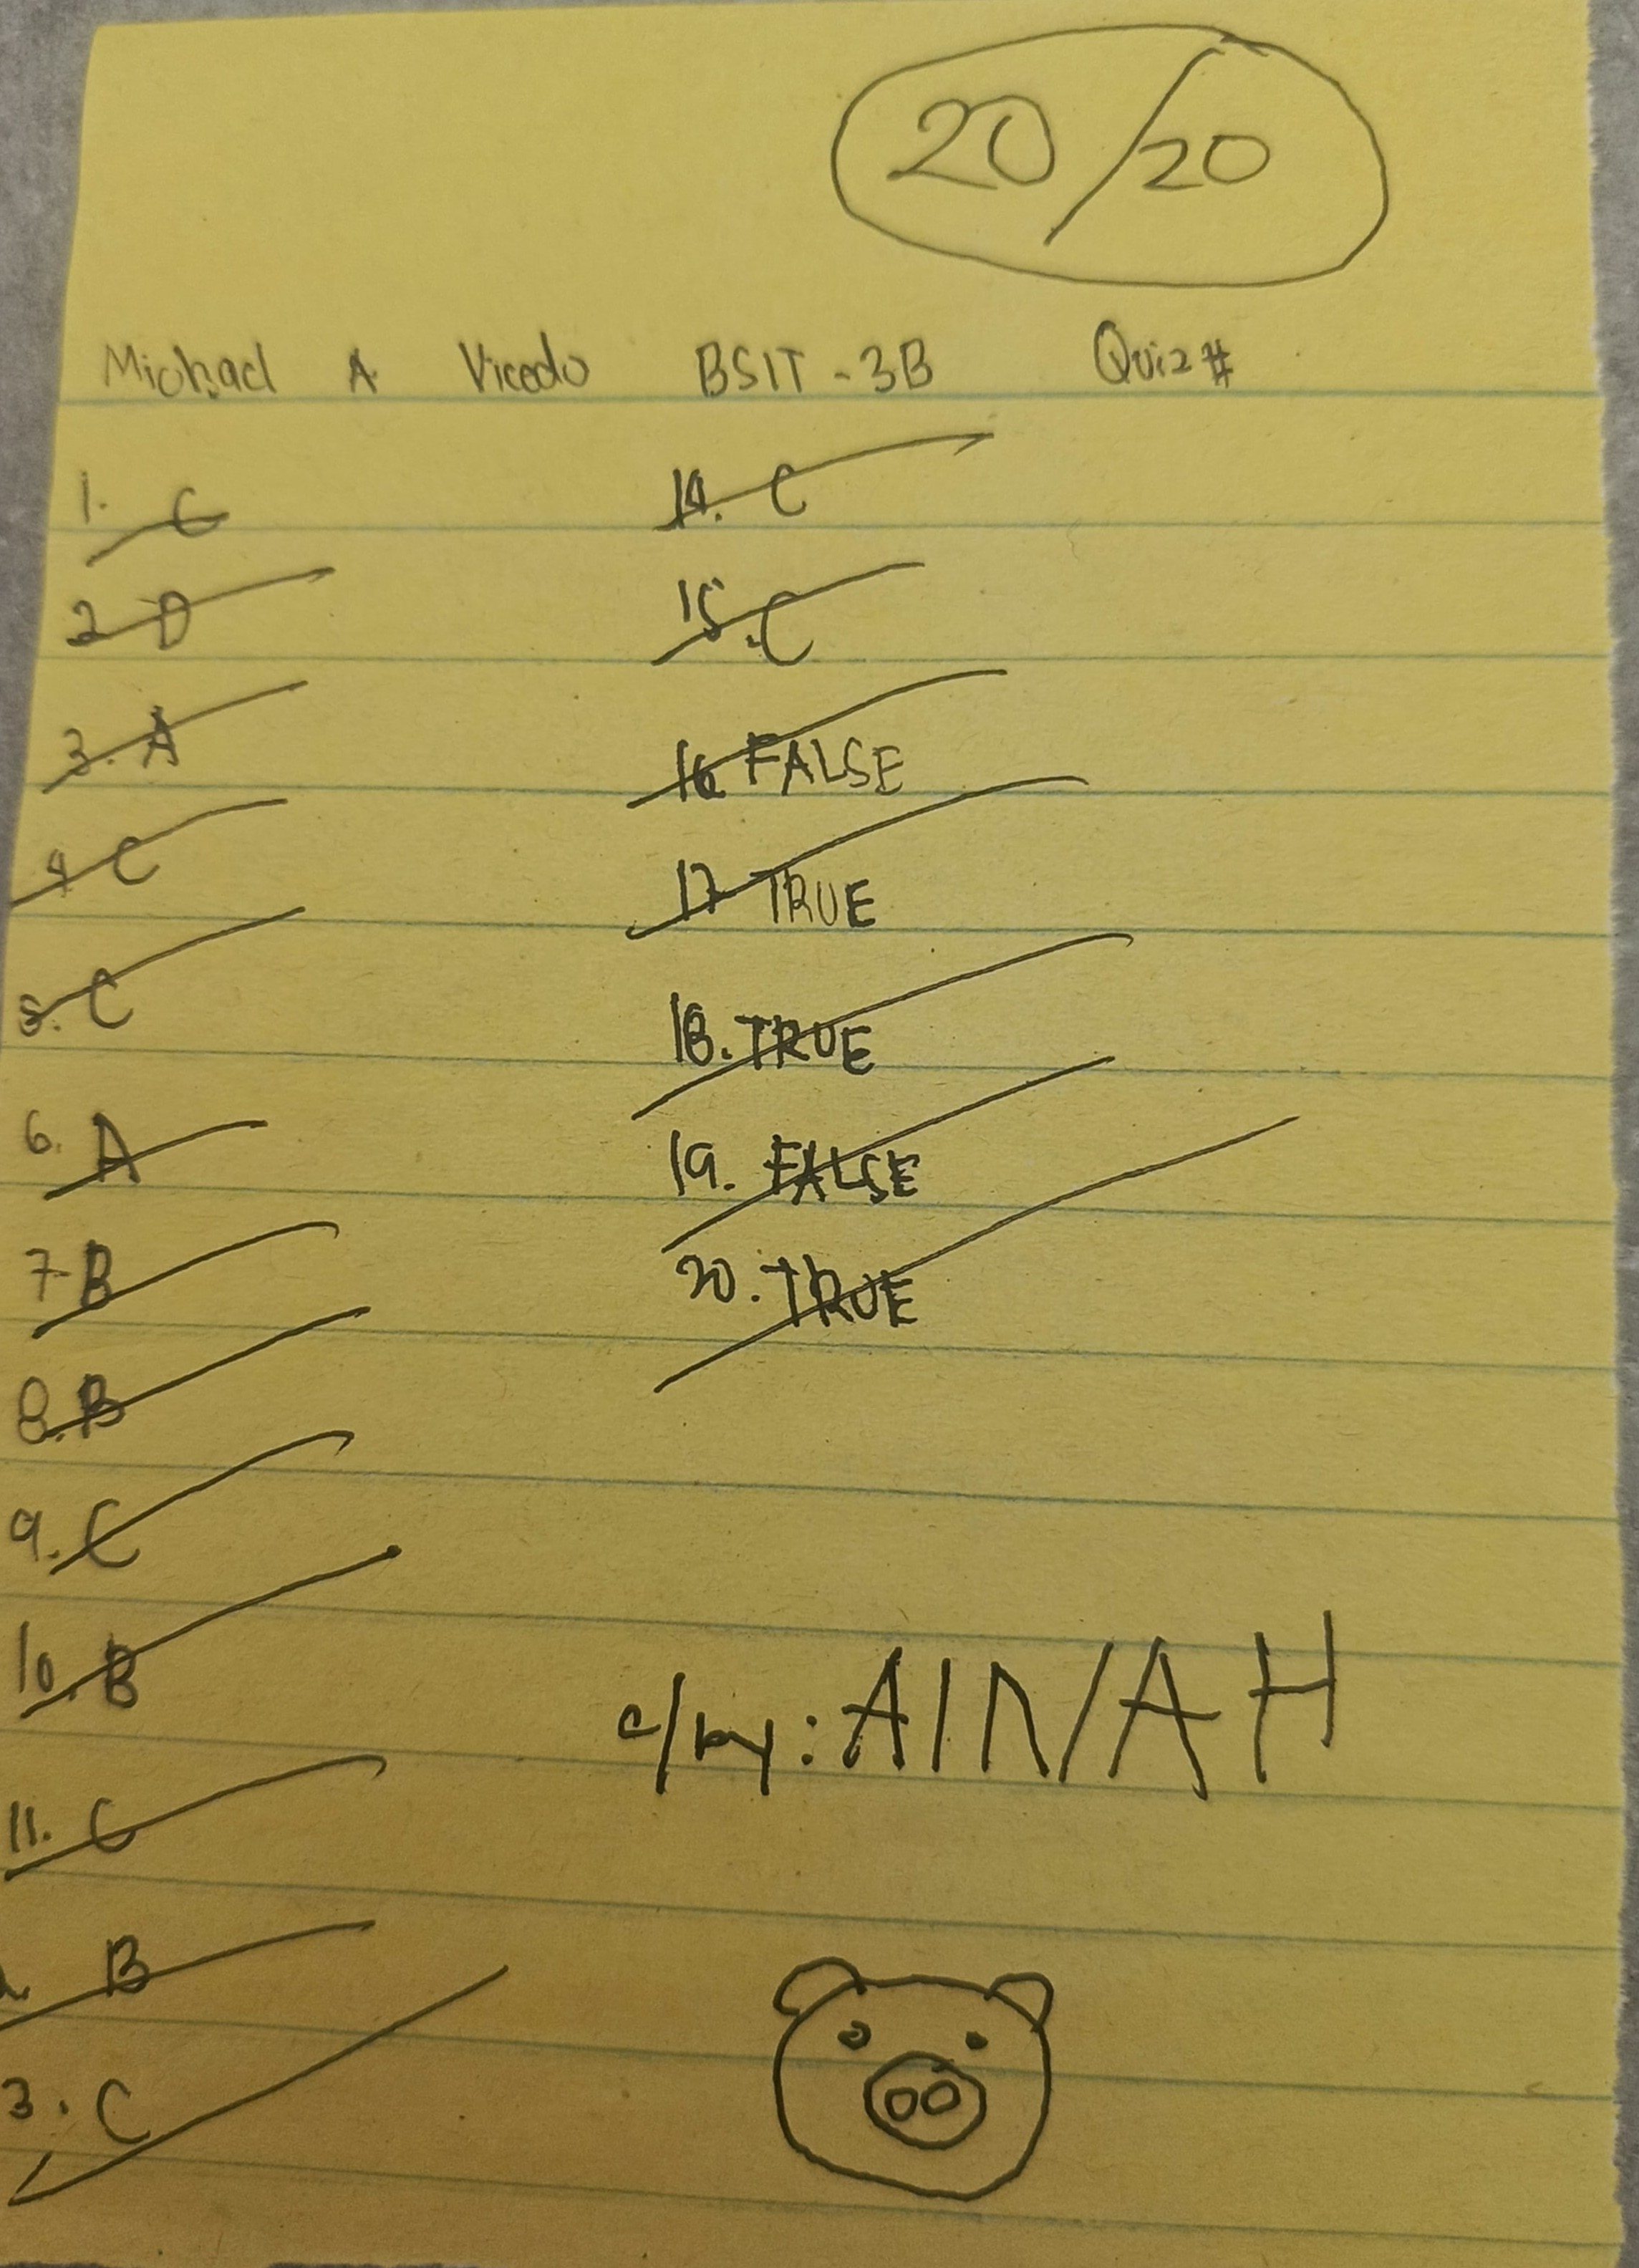 20/20
Michael A Vicedo BSIT - 3B Quiz #
1. C
2 D
3. A
4 C
5. C
6. A
7 B
8. B
9. C
10. B
11. C
B
3. C
14. C
15. C
16 FALSE
17 TRUE
18. TRUE
19. FALSE
20. TRUE
c/by: AINAH